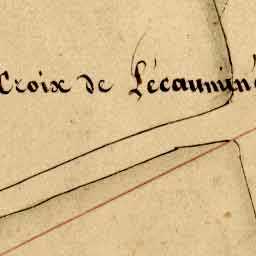 Croix de Lécaumin